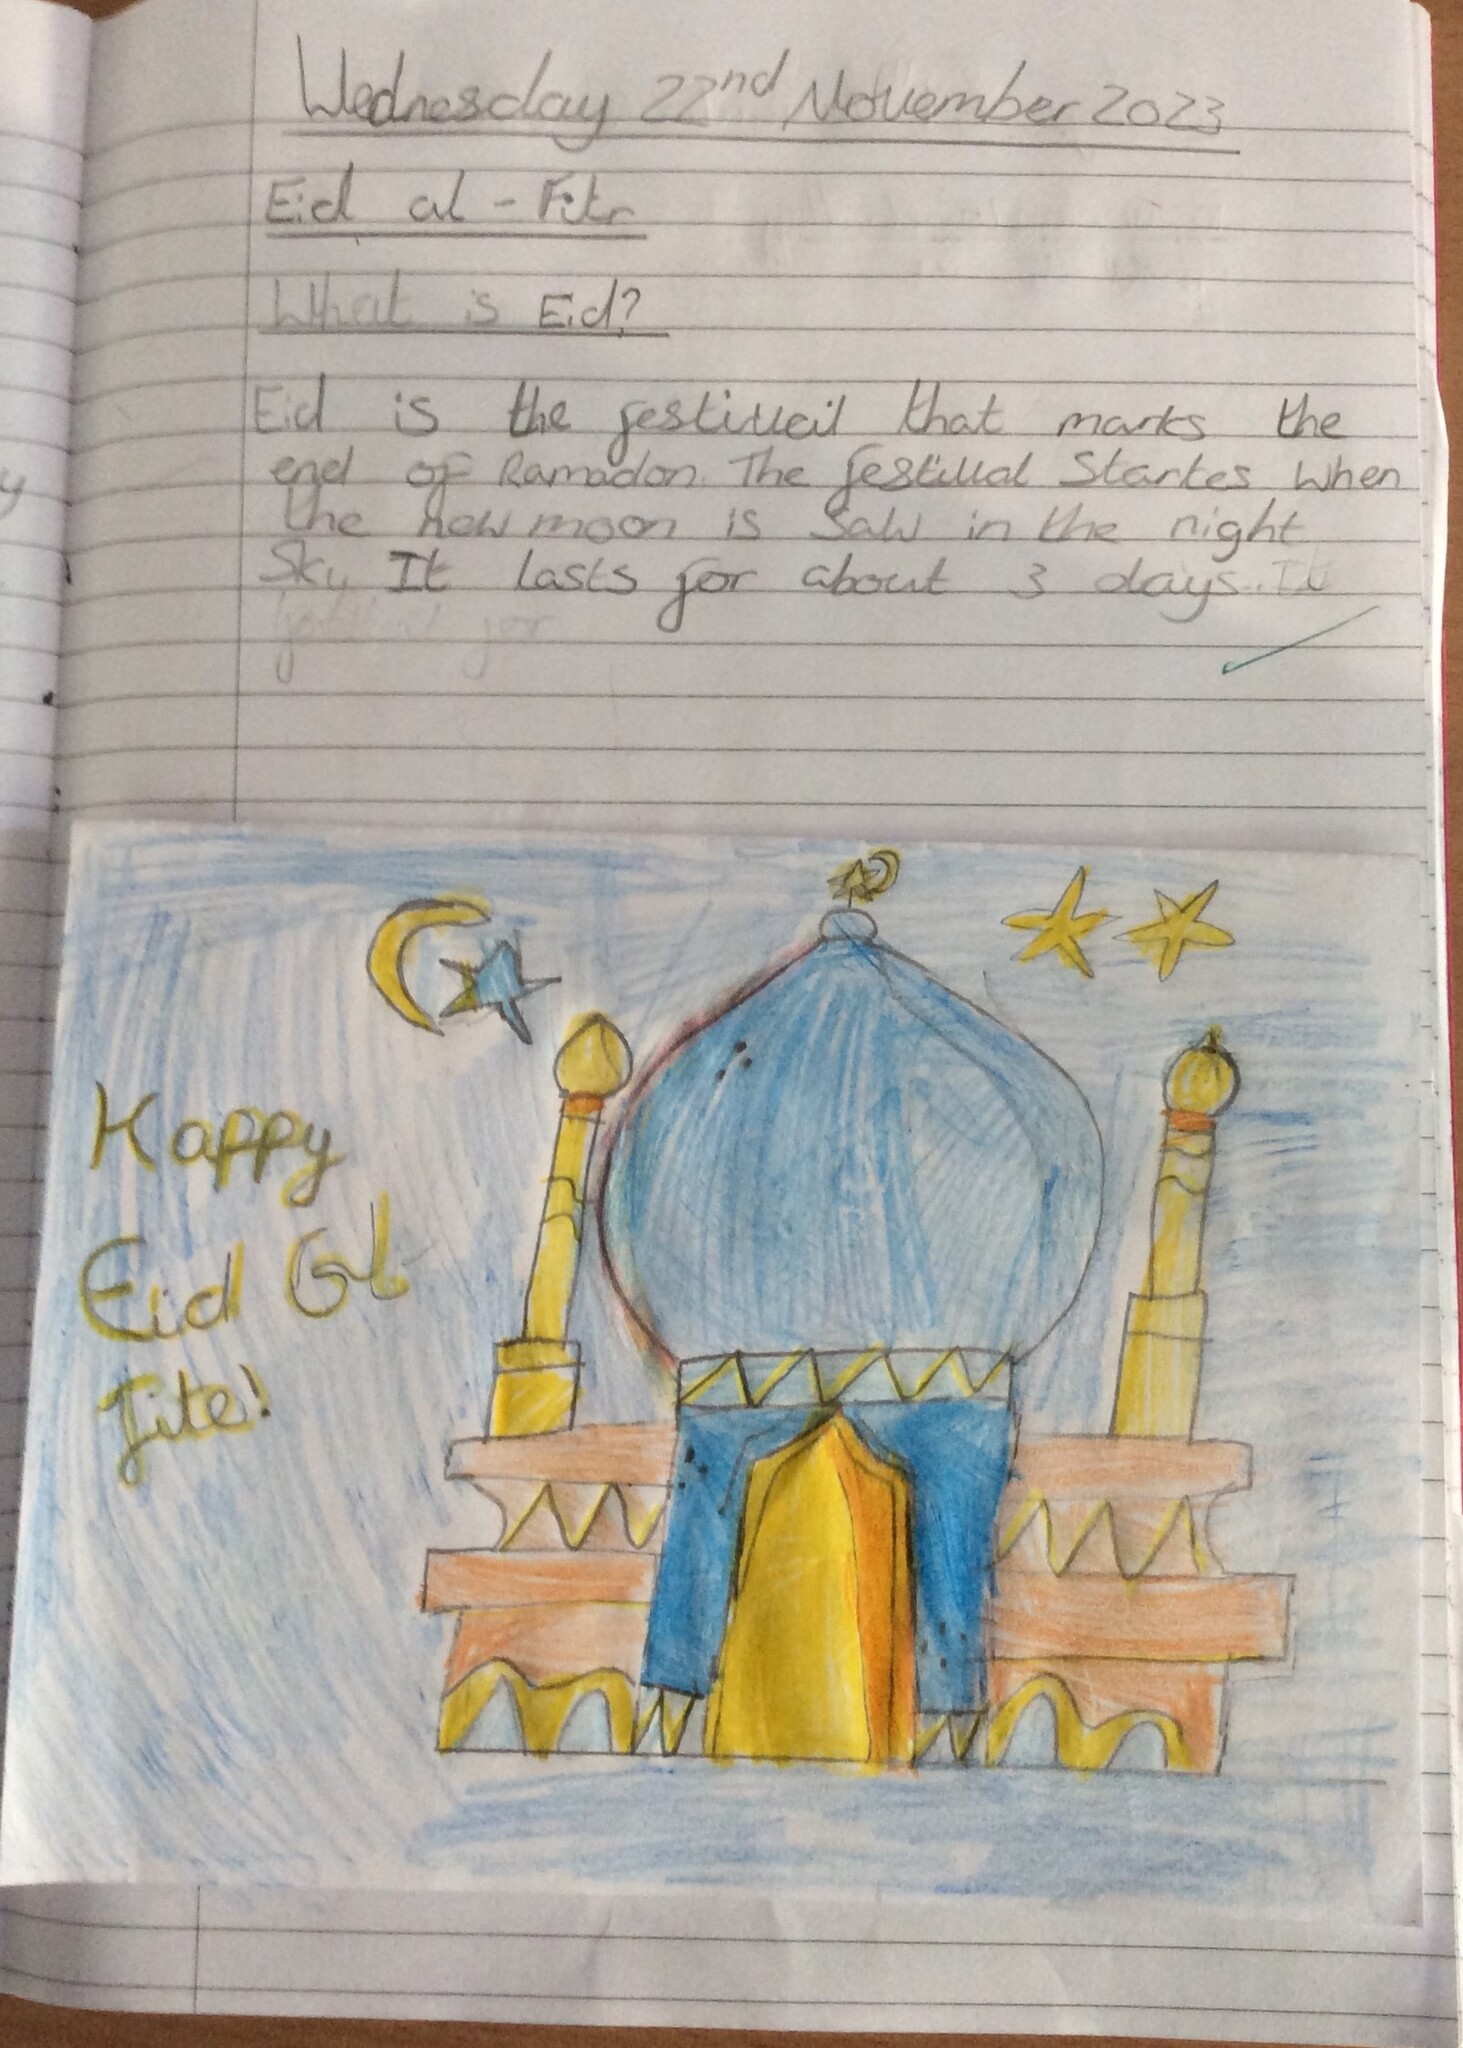 Wednesday 22nd November 2023
Eid al - Fitr
What is Eid?
Eid is the festiveil that marks the
end of Ramadon. The festival Startes when
the new moon is saw in the night
Sky. It lasts for about 3 days. It
for
Happy
Eid al
fite!
y